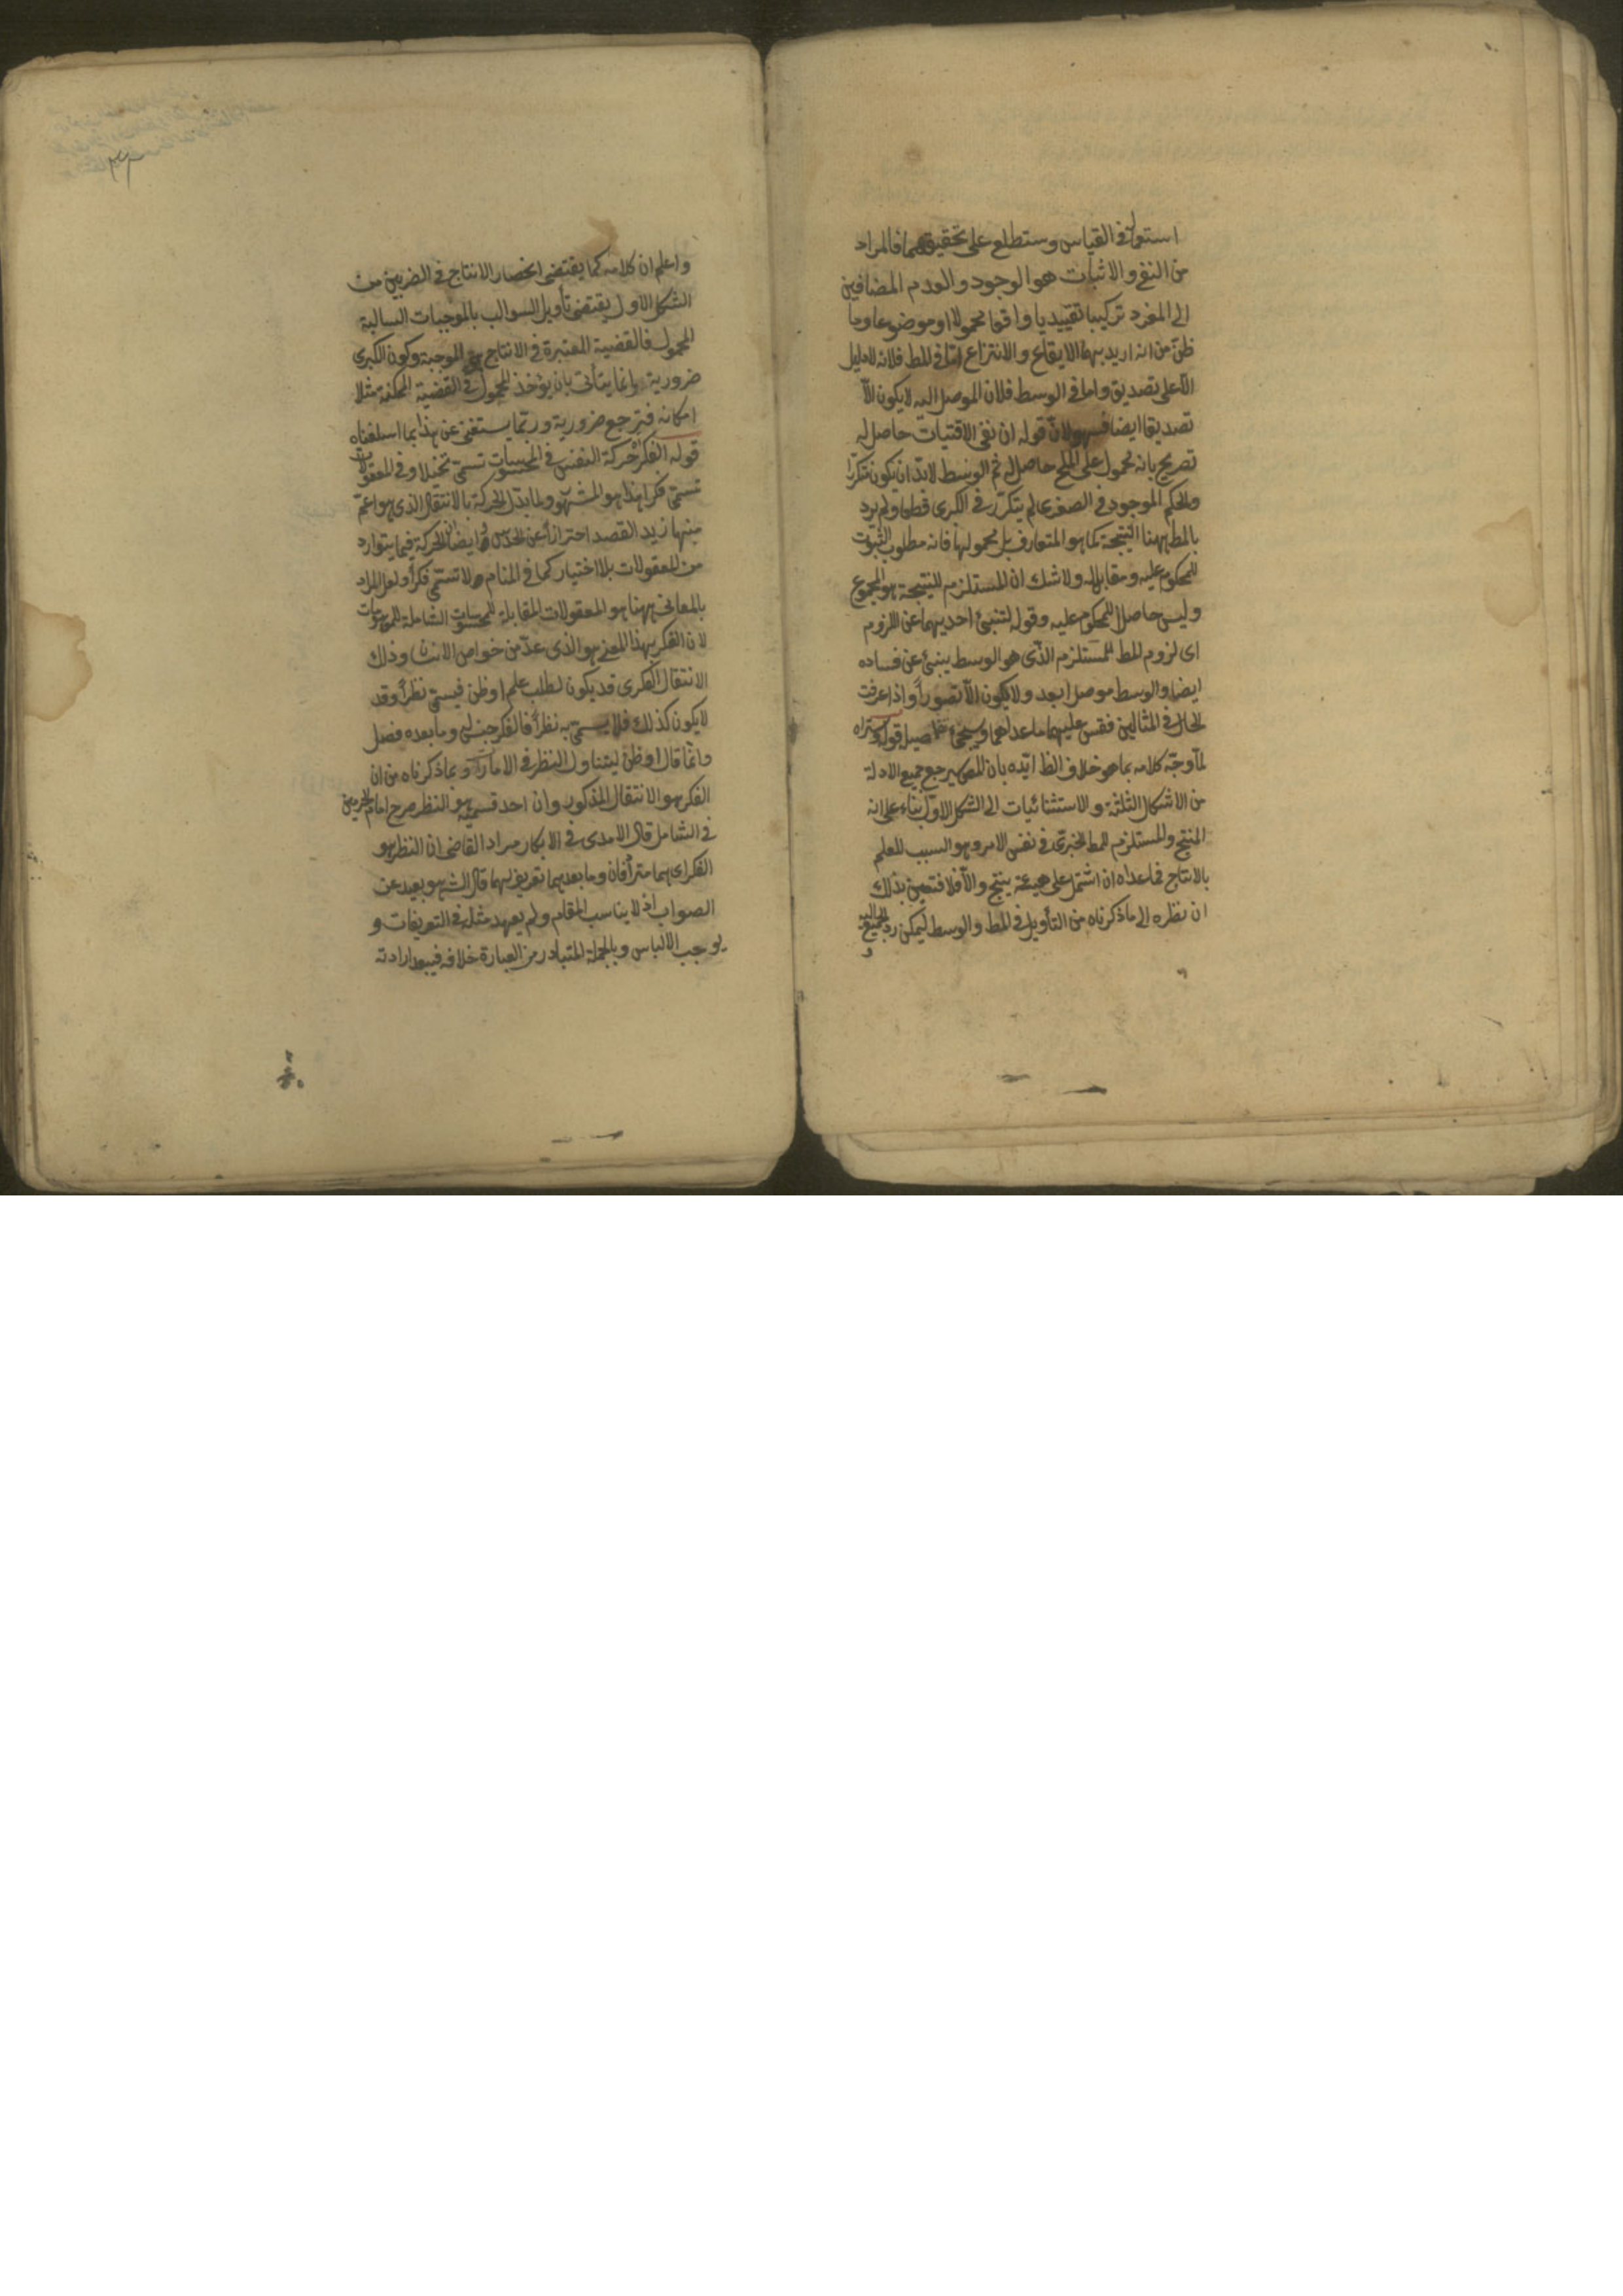 استعمل في القياس وستطلع على تحقيقهما فالمراد
من النفي والاثبات هو الوجود والعدم المضافين
الى المفرد تركيبا تقييديا واقعا محمولا او موضوعا وما
ظن من انه اريد بهما الايقاع والانتزاع اما في المط فلانه لا دليل
الا على تصديق واما في الوسط فلان الموصل اليه لا يكون الا
تصديقا ايضا فسهو لان قوله ان نفي الاقتيات حاصل له
تصريح بانه محمول على الملح حاصل له ثم الوسط لابد ان يكون متكررا
والحكم الموجود في الصغرى لم يتكرر في الكبرى قطعا ولم يرد
بالمط ههنا النتيجة كما هو المتعارف بل محمولها فانه مطلوب الثبوت
للمحكوم عليه ومقابله ولا شك ان المستلزم للنتيجة هو المجموع
وليس حاصلا للمحكوم عليه وقوله لتنبئ احديهما عن اللزوم
اى لزوم المط للمستلزم الذى هو الوسط ينبئ عن فساده
ايضا والوسط موصل ابعد ولا يكون الا تصورا واذا عرفت
الحال في المثالين فقس عليهما ما عداهما وسيجئ تفاصيل قوله وتراه
لما وجه كلامه بما هو خلاف الظ ايده بان المص يرجع جميع الادلة
من الاشكال الثلثة والاستثنائيات الى الشكل الاول بناء على انه
المنتج والمستلزم للمط الخبرى في نفس الامر وهو السبب للعلم
بالانتاج فما عداه ان اشتمل على هيئة ينتج والا فلا فتعين بذلك
ان نظره الى ما ذكرناه من التأويل في المط والوسط ليمكن رد الجميع اليه
و
واعلم ان كلامه كما يقتضى انحصار الانتاج في الضربين من
الشكل الاول يقتضى تأويل السوالب بالموجبات السالبة
المحمول فالقضية المعتبرة في الانتاج هي الموجبة وكون الكبرى
ضرورية وانما يتأتى بان يؤخذ المحمول في القضية الممكنة مثلا
امكانه فترجع ضرورية وربما يستغنى عن هذا بما اسلفناه
قوله الفكر حركة النفس في المحسوسات تسمى تخيلا وفي المعقولات
تسمى فكرا هذا هو المشهور ولما بدل الحركة بالانتقال الذى هو اعم
منها زيد القصد احترازا عن الحدس وايضا الحركة فيما يتوارد
من المعقولات بلا اختيار كما في المنام لا تسمى فكرا ولعل المراد
بالمعانى ههنا هو المعقولات المقابلة للمحسوسات الشاملة للموهومات
لان الفكر بهذا المعنى هو الذى عد من خواص الانسان وذلك
الانتقال الفكرى قد يكون لطلب علم او ظن فيسمى نظرا وقد
لا يكون كذلك فلا يسمى به نظرا فالفكر جنس له وما بعده فصل
وانما قال او ظن ليتناول النظر في الامارة وبما ذكرناه من ان
الفكر هو الانتقال المذكور وان احد قسميه هو النظر صرح امام الحرمين
في الشامل قال الامدى في الابكار مراد القاضى ان النظر هو
الفكر اى هما مترادفان وما بعدهما تعريف لهما قال الش هو بعيد عن
الصواب اذ لا يناسب المقام ولم يعهد مثله في التعريفات و
يوجب الالباس وبالجملة المتبادر من العبارة خلافه فيبعد ارادته